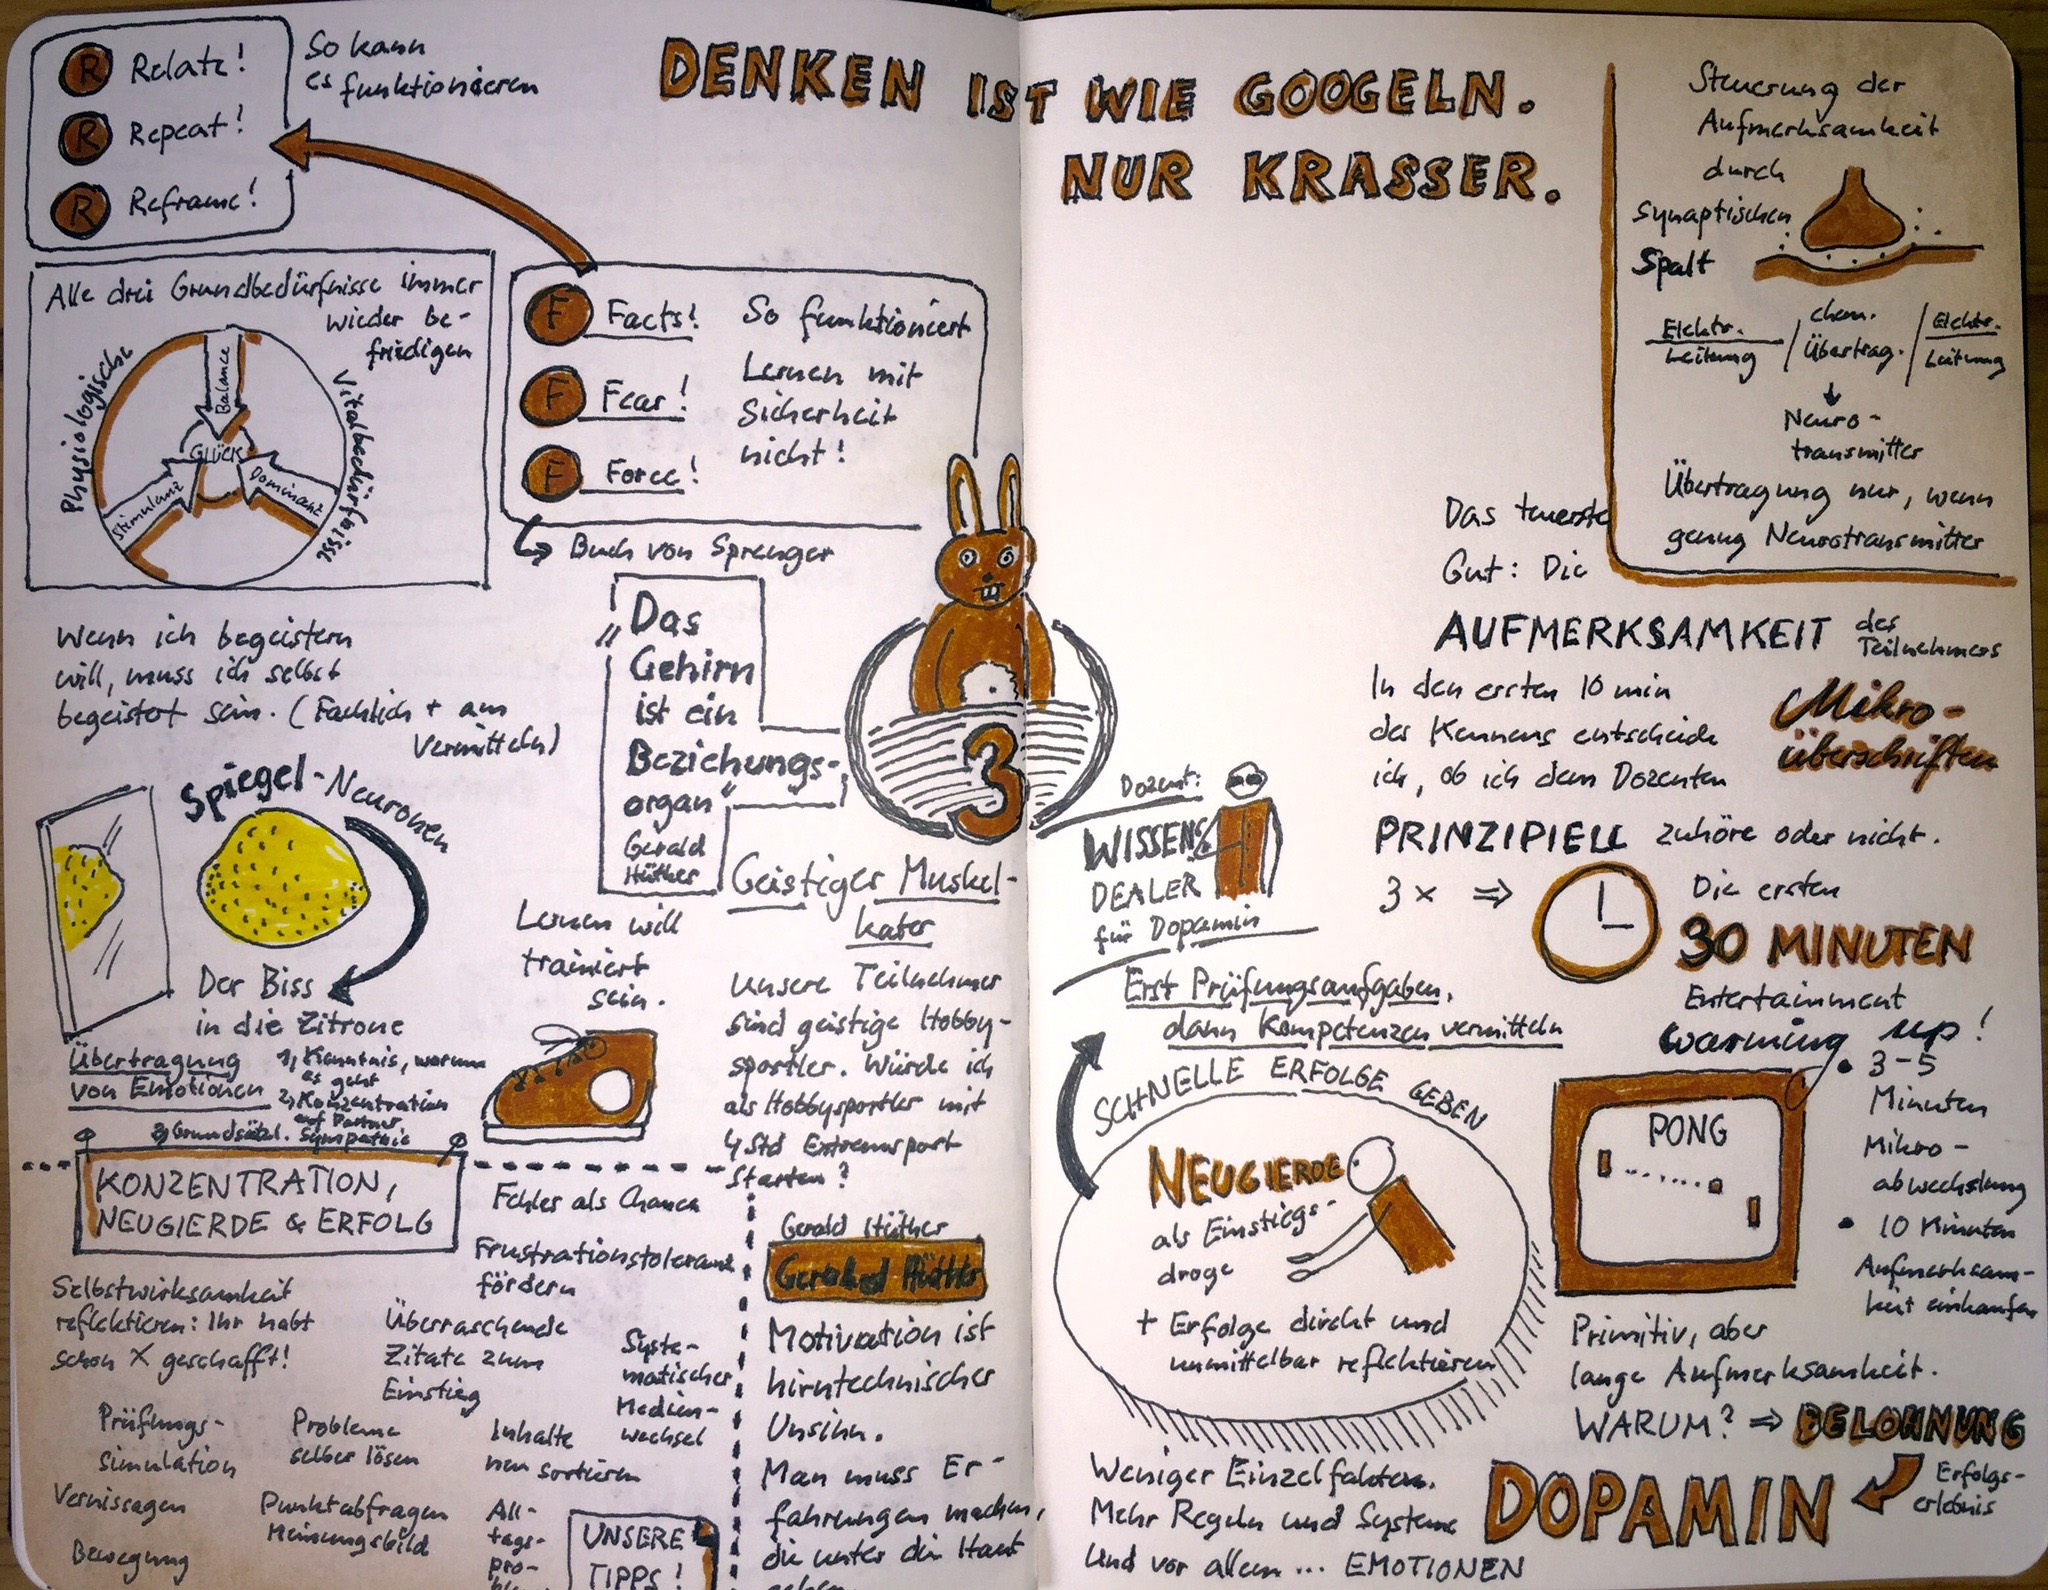 DENKEN IST WIE GOOGELN.
NUR KRASSER.
R Relate!
R Repeat!
R Reframe!
So kann
es funktionieren
Alle drei Grundbedürfnisse immer
wieder be-
friedigen
Physiologische
Vitalbedürfnisse
Balance
GLÜCK
Stimulanz
Dominanz
F Facts!
F Fear!
F Force!
So funktioniert
Lernen mit
Sicherheit
nicht!
Buch von Sprenger
Wenn ich begeistern
will, muss ich selbst
begeistert sein. (Fachlich + am
Vermitteln)
"Das
Gehirn
ist ein
Beziehungs-
organ"
Gerald
Hüther
3
Spiegel-Neuronen
Der Biss
in die Zitrone
Übertragung
von Emotionen
1, Kenntnis, warum
es geht
2, Konzentration
auf Partner
3, Grundsätzl. Sympathie
Lernen will
trainiert
sein.
Geistiger Muskel-
kater
Unsere Teilnehmer
sind geistige Hobby-
sportler. Würde ich
als Hobbysportler mit
4 Std Extremsport
starten?
KONZENTRATION,
NEUGIERDE & ERFOLG
Selbstwirksamkeit
reflektieren: Ihr habt
schon X geschafft!
Fehler als Chance
Frustrationstoleranz
fördern
Überraschende
Zitate zum
Einstieg
Syste-
matischer
Medien-
wechsel
Prüfungs-
simulation
Probleme
selber lösen
Inhalte
neu sortieren
Vernissagen
Punktabfragen
Meinungsbild
All-
tags-
pro-
Bewegung
UNSERE
TIPPS!
Gerald Hüther
Gerald Hüther
Motivation ist
hirntechnischer
Unsinn.
Man muss Er-
fahrungen machen,
die unter die Haut
gehen.
Dozent:
WISSENS
DEALER
für Dopamin
Erst Prüfungsaufgaben,
dann Kompetenzen vermitteln
SCHNELLE ERFOLGE GEBEN
NEUGIERDE
als Einstiegs-
droge
+ Erfolge direkt und
unmittelbar reflektieren
Weniger Einzelfakten.
Mehr Regeln und Systeme
Und vor allem ... EMOTIONEN
Steuerung der
Aufmerksamkeit
durch
synaptischen
Spalt
Elektr.
Leitung
/ chem.
Übertrag.
/ Elektr.
Leitung
Neuro-
transmitter
Übertragung nur, wenn
genug Neurotransmitter
Das teuerste
Gut: Die
AUFMERKSAMKEIT des
Teilnehmers
In den ersten 10 min
des Kennens entscheide
ich, ob ich dem Dozenten
PRINZIPIELL zuhöre oder nicht.
Mikro-
überschriften
3 x ⇒
Die ersten
30 MINUTEN
Entertainment
warming up!
PONG
• 3-5
Minuten
Mikro-
abwechslung
• 10 Minuten
Aufmerksam-
keit einkaufen
Primitiv, aber
lange Aufmerksamkeit.
WARUM? ⇒ BELOHNUNG
Erfolgs-
erlebnis
DOPAMIN